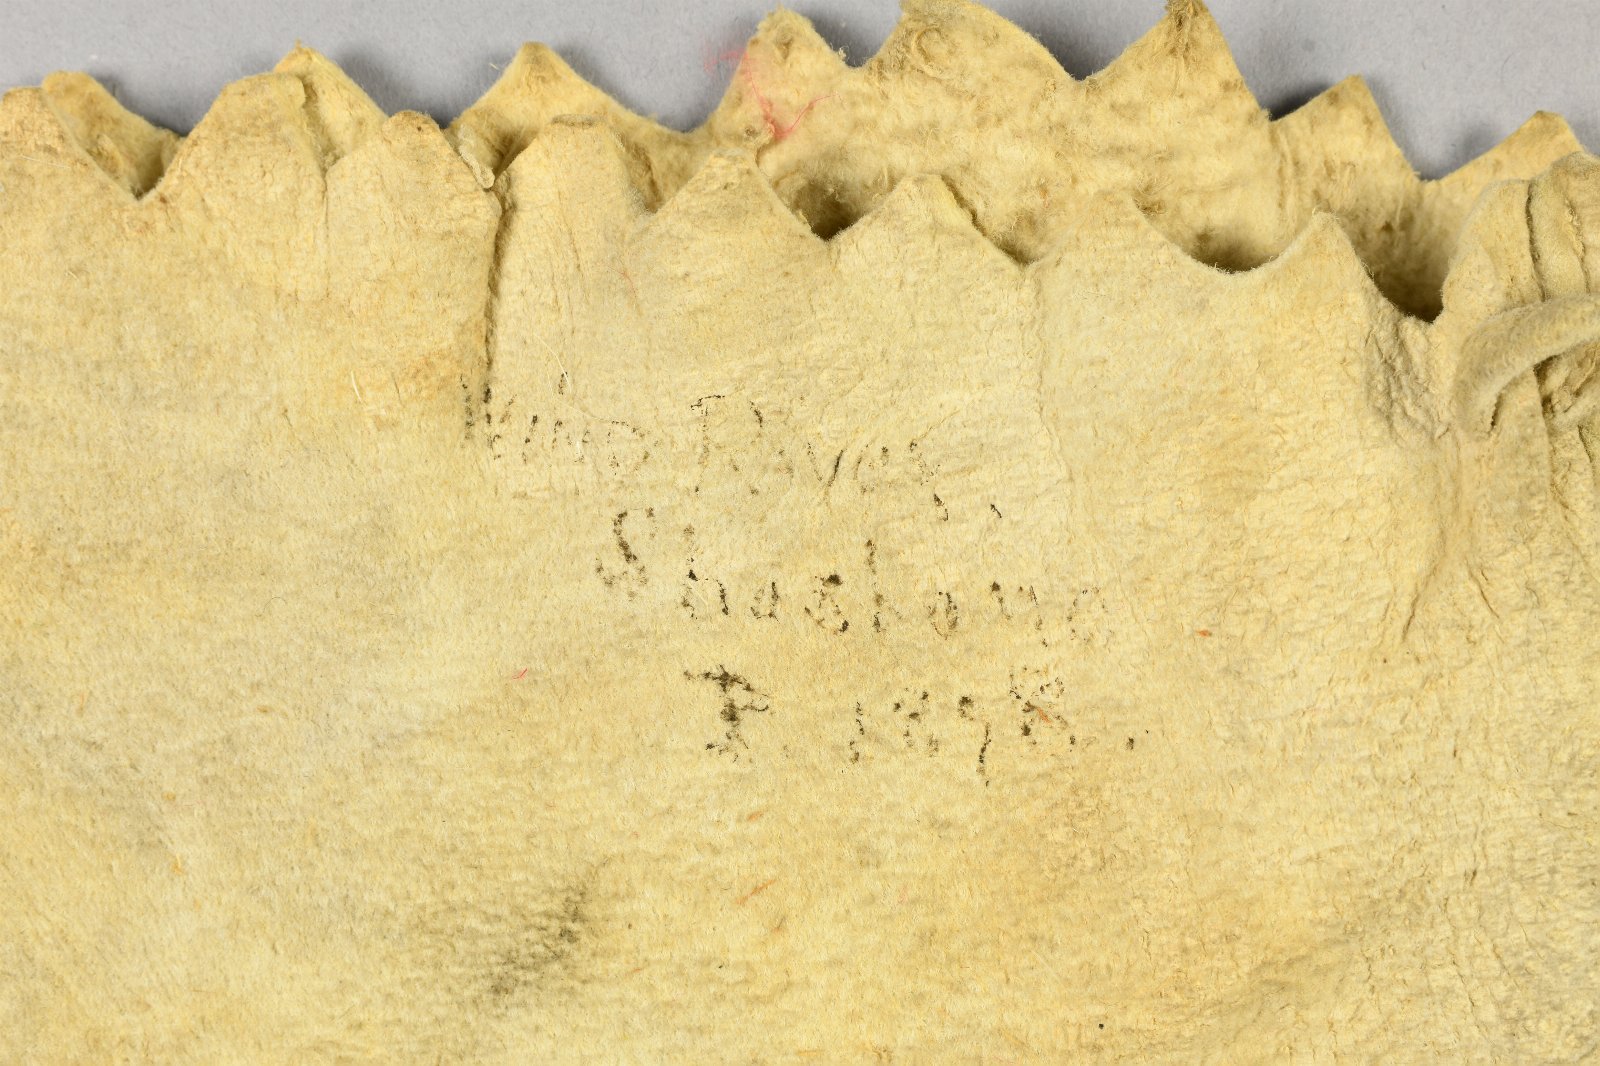 Wind River
Shoshone
I. 1898.